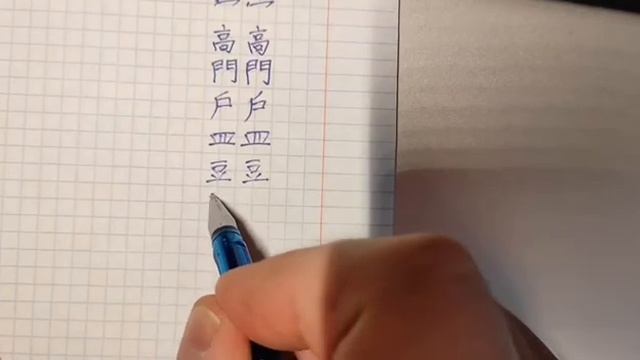 高高
門門
戶戶
皿皿
豆豆